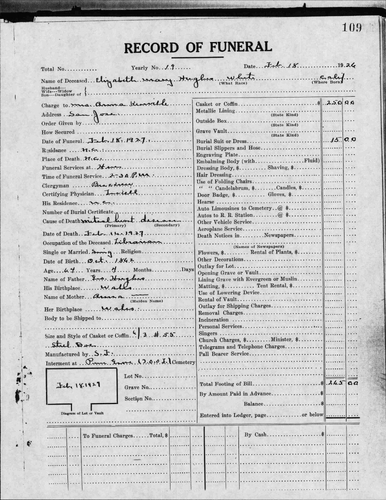 109
RECORD OF FUNERAL
Total No. Yearly No. 19 Date Feb 18 1926
Name of Deceased Elizabeth Mary Hughes White Calif
(What Race)
Husband—
Wife—Widow
Son—Daughter of
Charge to Mrs. Anna
Address San Jose
Order Given by
How Secured
Date of Funeral Feb. 18, 1927.
Residence H.C.
Place of Death H.C.
Funeral Services at Here
Time of Funeral Service 2:30 P.M.
Clergyman
Certifying Physician
His Residence
Number of Burial Certificate
Cause of Death Mitral heart disease
(Primary) (Secondary)
Date of Death Feb. 16, 1927.
Occupation of the Deceased Librarian
Single or Married Sing Religion
Date of Birth Oct. 1864
Age 64 Years 4 Months Days
Name of Father Hughes
His Birthplace Wales
Name of Mother Anna
(Maiden Name)
Her Birthplace Wales
Body to be Shipped to
Size and Style of Casket or Coffin 6/3 # 55
Steel Box
Manufactured by S.F.
Interment at Cemetery
Lot No.
Grave No.
Section No.
Feb, 18, 1927
Diagram of Lot or Vault
Casket or Coffin $ 250 00
Metallic Lining
(State Kind)
Outside Box
(State Kind)
Grave Vault
(State Kind)
Burial Suit or Dress 15 00
Burial Slippers and Hose
Engraving Plate
Embalming Body (with Fluid)
Dressing Body, $ Shaving, $
Hair Dressing
Use of Folding Chairs
" " Candelabrum, $ Candles, $
Door Badge, $ Gloves, $
Hearse
Auto Limousines to Cemetery @ $
Autos to R. R. Station @ $
Other Vehicle Service
Aeroplane Service
Death Notices in Newspapers
(Names of Newspapers)
Flowers, $ Rental of Plants, $
Other Decorations
Outlay for Lot
Opening Grave or Vault
Lining Grave with Evergreen or Muslin
Matting, $ Tent Rental, $
Use of Lowering Device
Rental of Vault
Outlay for Shipping Charges
Removal Charges
Incineration
Personal Services
Singers
Church Charges, $ Minister, $
Telegrams and Telephone Charges
Pall Bearer Service
Total Footing of Bill $ 265 00
By Amount Paid in Advance
Balance
Entered into Ledger, page or below
To Funeral Charges Total $ By Cash $